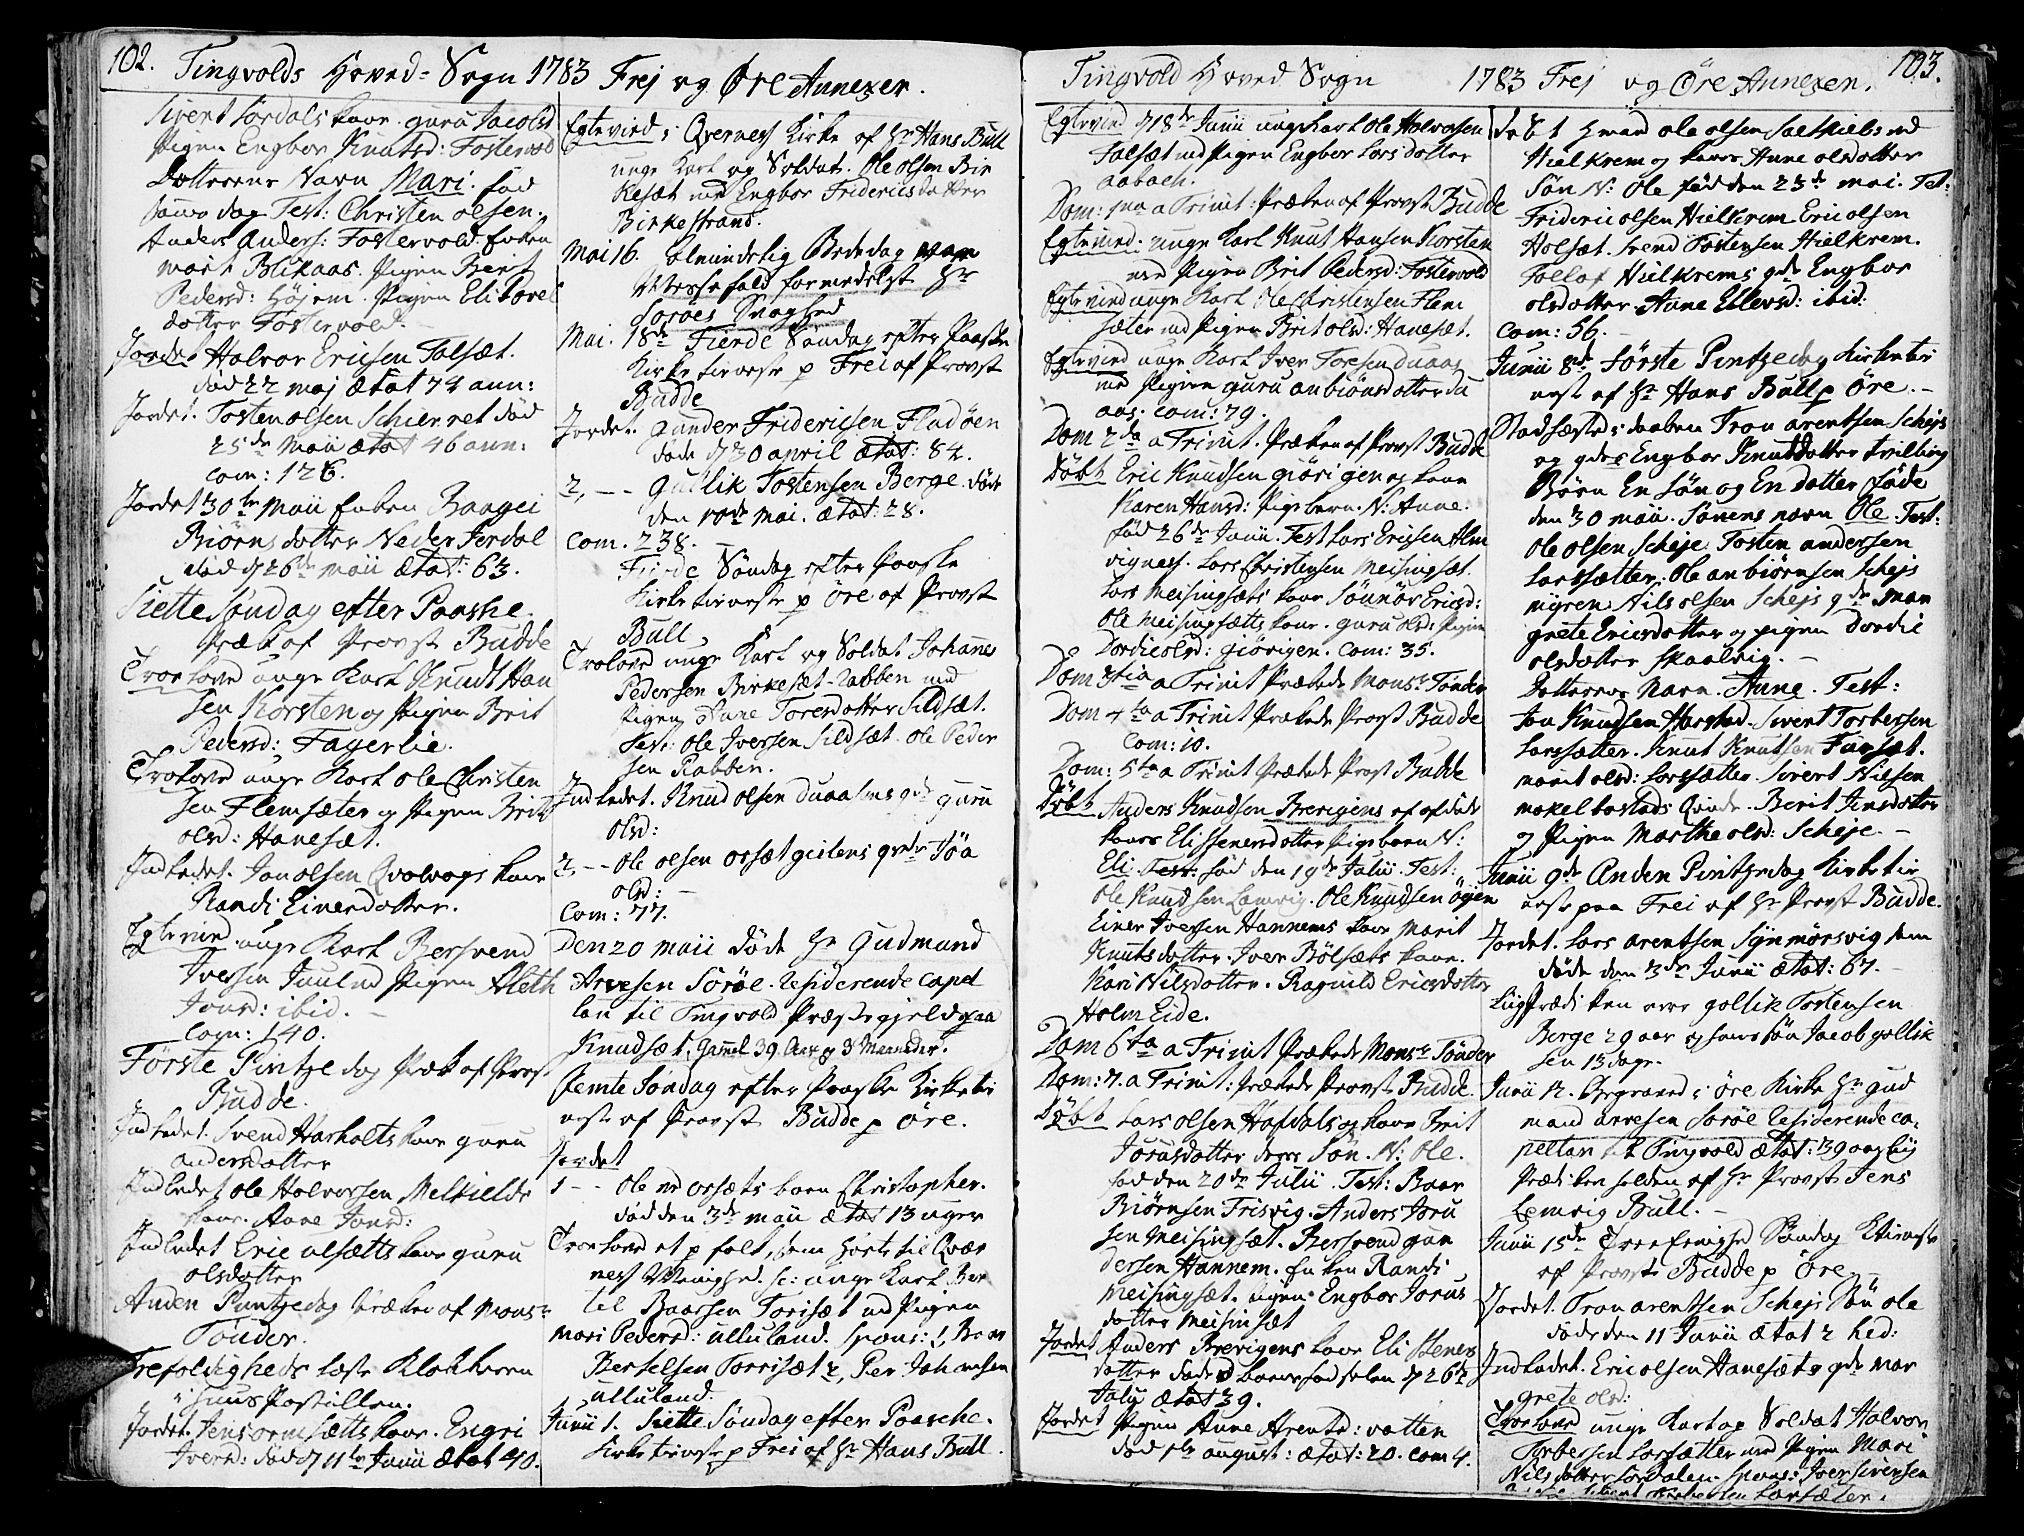 102. Tingvolds Hoved-Sogn 1783 Frej og Øre Annexer.
Sivert Sordals kone guru Jacobsd
Pigen Engbor Knutsd: Fostervold
Dotterens Navn Mari. fød
samme dag Test: Christen olsen.
Anders Anders: Fostervold. Enken
marit Blikaas. Pigen Berit
Pedersd: Højem. Pigen Eli
dotter Fostervold.
Jordet Halvor Ericsen Talset.
død 22 maj ætat 74 ann:
Jordet. Tosten olsen Schierret død
25de Maii ætat 46 ann:
Com: 126.
Jordet 30te Maii Enken Raagei
Biørnsdotter Neder Serdal
død d 26de Maii ætat: 63.
Siette Søndag efter Paaske.
Præk af Provst Budde
Troelovd unge Karl Knudt Han
sen Korsten og Pigen Brit
Pedersd: Fagerlie.
Trolovd unge Karl Ole Christen
sen Flemsæter og Pigen Brit
olsd: Hanesæt.
Indledet. Jon olsen Qvalvogs kone
Randi Einersdotter.
Egtevied unge Karl Bersvend
Iversen Juul med Pigen Aleth
Jonsd: ibid.
Com: 140.
Første Pintzedag Præk af Provst
Budde.
Indledet. Svend Harholts kone guru
andersdotter
Indledet Ole Halvorsen Melkilds
kone. Anne Jonsd:
Indledet Eric ulsætts kone guru
olsdotter
Anden Pintzedag Præken af Mons:
Tønder.
Trefoldigheds læste Klokkeren
i Huus Postillen.
Jordet. Jens ormsætts kone. Engri
Iversd: død d 11te Junii ætat 40.
Egtevied i Qvernes Kirke af Hr Hans Bull
unge Karl og Soldat. Ole olsen Bir
kesæt med Engbor Fridericsdatter
Birkestrand.
Mai 16. almindelig Bededag var
Messefald formedelst Hr
Sorøes Svaghed
Mai. 18de Fierde Søndag efter Paaske
Kirketieneste p Frei af Provst
Budde
Jordet. Gunder Fridericsen Fladøen
døde d 30 april ætat: 84.
2, -- Gullik Tostensen Berge. døde
den 10de Mai. ætat: 28.
Com. 238.
Fierde Søndag efter Paaske
Kirketieneste p Øre af Provst
Bull,
Trolovd unge Karl og Soldat Johanes
Pedersen Birkesæt-Rabben med
Pigen Anne Toresdotter Sildsæt.
Test: Ole Iversen Sildsæt. Ole Peder
sen Rabben.
Indledet. Knud olsen Duaasens qvd guru
olsd:
2, -- Ole olsen orsæt gislens qvde Søa
olsd: -
Com: 77.
Den 20 Maii Døde Hr Gudmund
Arvesen Sorøe. Residerende Capel
lan til Tingvold Præstegjeld paa
Knudsæt. Gamel 39 Aar og 3 Maaneder.
Femte Søndag efter Paaske Kirketie
neste af Provst Budde p Øre.
Jordet
1 -- Ole nd orsæts barn Christopher.
død den 3de Maii ætat 13 uger
Troelovd et p folk, som hørte til Qvær
ness Menighed. sc: unge Karl Ber
til Baarsen Torisæt med Pigen
Mari Pedersd: ulluland. spons: 1, Baar
Bertelsen Torrisæt 2, Per Johansen
ulluland.
Junii 1. Siette Søndag efter Paasche.
Kirketieneste p Frei af Hr Hans Bull.
Tingvold Hoved Sogn 1783 Frej og Øre Annexer. 103.
Egtevied d 18de Junii unge Karl Ole Halvorsen
Talsæt med Pigen Engbor Larsdotter
aabach.
Dom: 1ma a Trinit: Præken af Provst Budde
Egtevied. unge Karl Knut Hansen Korsten
med Pigen Brit Pedersd: Fostervold
Egtevied unge Karl Ole Christensen Flem
sæter med Pigen Brit olsd: Hanesæt.
Egtevied unge Karl Iver Toresen Duaas
med Pigen guru anbiørnsdotter Du
aas. Com: 79.
Dom 2da a Trinit. Præken af Provst Budde
Døbt Eric Knudsen giørigen og kone
Karen Hansd: Pigebarn. N: Anne:
fød 26de Junii. Test Lars Ericsen Alm
vignes. Lars Christensen Meisingsæt.
Lars Meisingsæts kone Sønnøv Ericsd:
Ole Meisingsætts kone. guru olsd: Pigen
Dordi olsd: giørigen. Com: 35.
Dom 3tia a Trinit Prækede Monsr Tønder
Dom 4ta a Trinit Prækede Provst Budde
Com: 10.
Dom: 5ta a Trinit Prækede Provst Budde
Døbt Anders Knudsen Brevigens og afdøde
kones Eli Stenersdotter Pigebarn N:
Eli. Test: fød den 19de Julii. Test:
Ole Knudsen Lamvig. Ole Knudsen Øyen
Einer Iversen Hannems kone Marit
Knutsdotter. Iver Bølsæts kone.
Kari Nilsdotter. Ragnild Ericsdotter
Holm Eide.
Dom 6ta a Trinit Prækede Monsr Tønder
Dom: 7. a Trinit: Prækede Provst Budde.
Døbt Lars olsen Hafdals og kone Brit
Jorusdotter deres Søn. N: Ole.
fød den 20de Julii. Test: Baar
Biørnsen Trisvig. Anders Joru
sen Meisingsæt. Bersvend gun
dersen Hannem. Enken Randi
Meisingsæt. Pigen Engbor Jorus
dotter Meisinsæt
Jordet Anders Brevigens kone Eli Steners
dotter døde i barnefødselen d 26de
Julii ætat 39.
Jordet Pigen Anne Arentsd: vatten
død 1te august: ætat: 20. Com 4.
døbt Hmand ole olsen
Hielkrem og kone Anne olsdotter
Søn N: Ole fød den 23de Mai. Test:
Frideric olsen Hielkrem Eric olsen
Holsæt. Svend Tostensen Hielkrem.
Tollof Hielkrems qde Engbor
olsdotter Anne Ellevsd: ibid:
Com: 56.
Junii 8de Første Pintzedag Kirketie
neste af Hr Hans Bull p Øre. -
Stadfæsted i daaben Tron arentsen Schejs
og qdes Engbor Knutdotter Tvilling
Børn En Søn og En dotter føde
den 30 Maii. Sønens navn Ole. Test:
Ole olsen Scheje Tosten andersen
Larssætter. Ole anbiørnsen Schejs
myren. Nils olsen Schejs qde Mar
grete Ericsdotter og pigen Dordie
olsdotter Skaalvig. -
Dotterens Navn. Anne. Test:
Jon Knudsen Harstad. Sivert Torbersen
Larssætter. Knut Knutsen Farsæt.
Marit olsd: Larssætter. Sivert Nilsen
Mekelbostads Qvinde. Berit Jensdotter
og Pigen Marthe olsd: Scheje. -
Junii 9de Anden Pintzedag Kirketie
neste paa Frei af Hr Provst Budde.
Jordet. Lars arentsen Synmørsvig som
døde den 3de Junii ætat: 67. -
Liigprædiken over gollik Tostensen
Berge 29 aar og hans Søn Jacob gollik
sen 15 dage.
Junii 12. Begraved i Øre Kirke Hr Gud
mand arvesen Sorøe Residerende Ca,
pellan til Tingvold ætat: 39 aar Lig
Prædiken holden af Hr Provst Jens
Lemvig Bull. -
Junii 15de Treeenigheds Søndag Ktieneste
af Provst Budde p Øre.
Jordet. Tron arentsen Schejs Søn ole
døde den 11 Junii ætat 2 hed:
Indledet. Eric olsen Hanesæts qde Mar
grete olsd:
Trolovd unge Karl og Soldat Halvor
Torbersen Larssætter med Pigen Mari
Nilsdotter Sordalen. Spons: Iver Siversen
Larsæter.